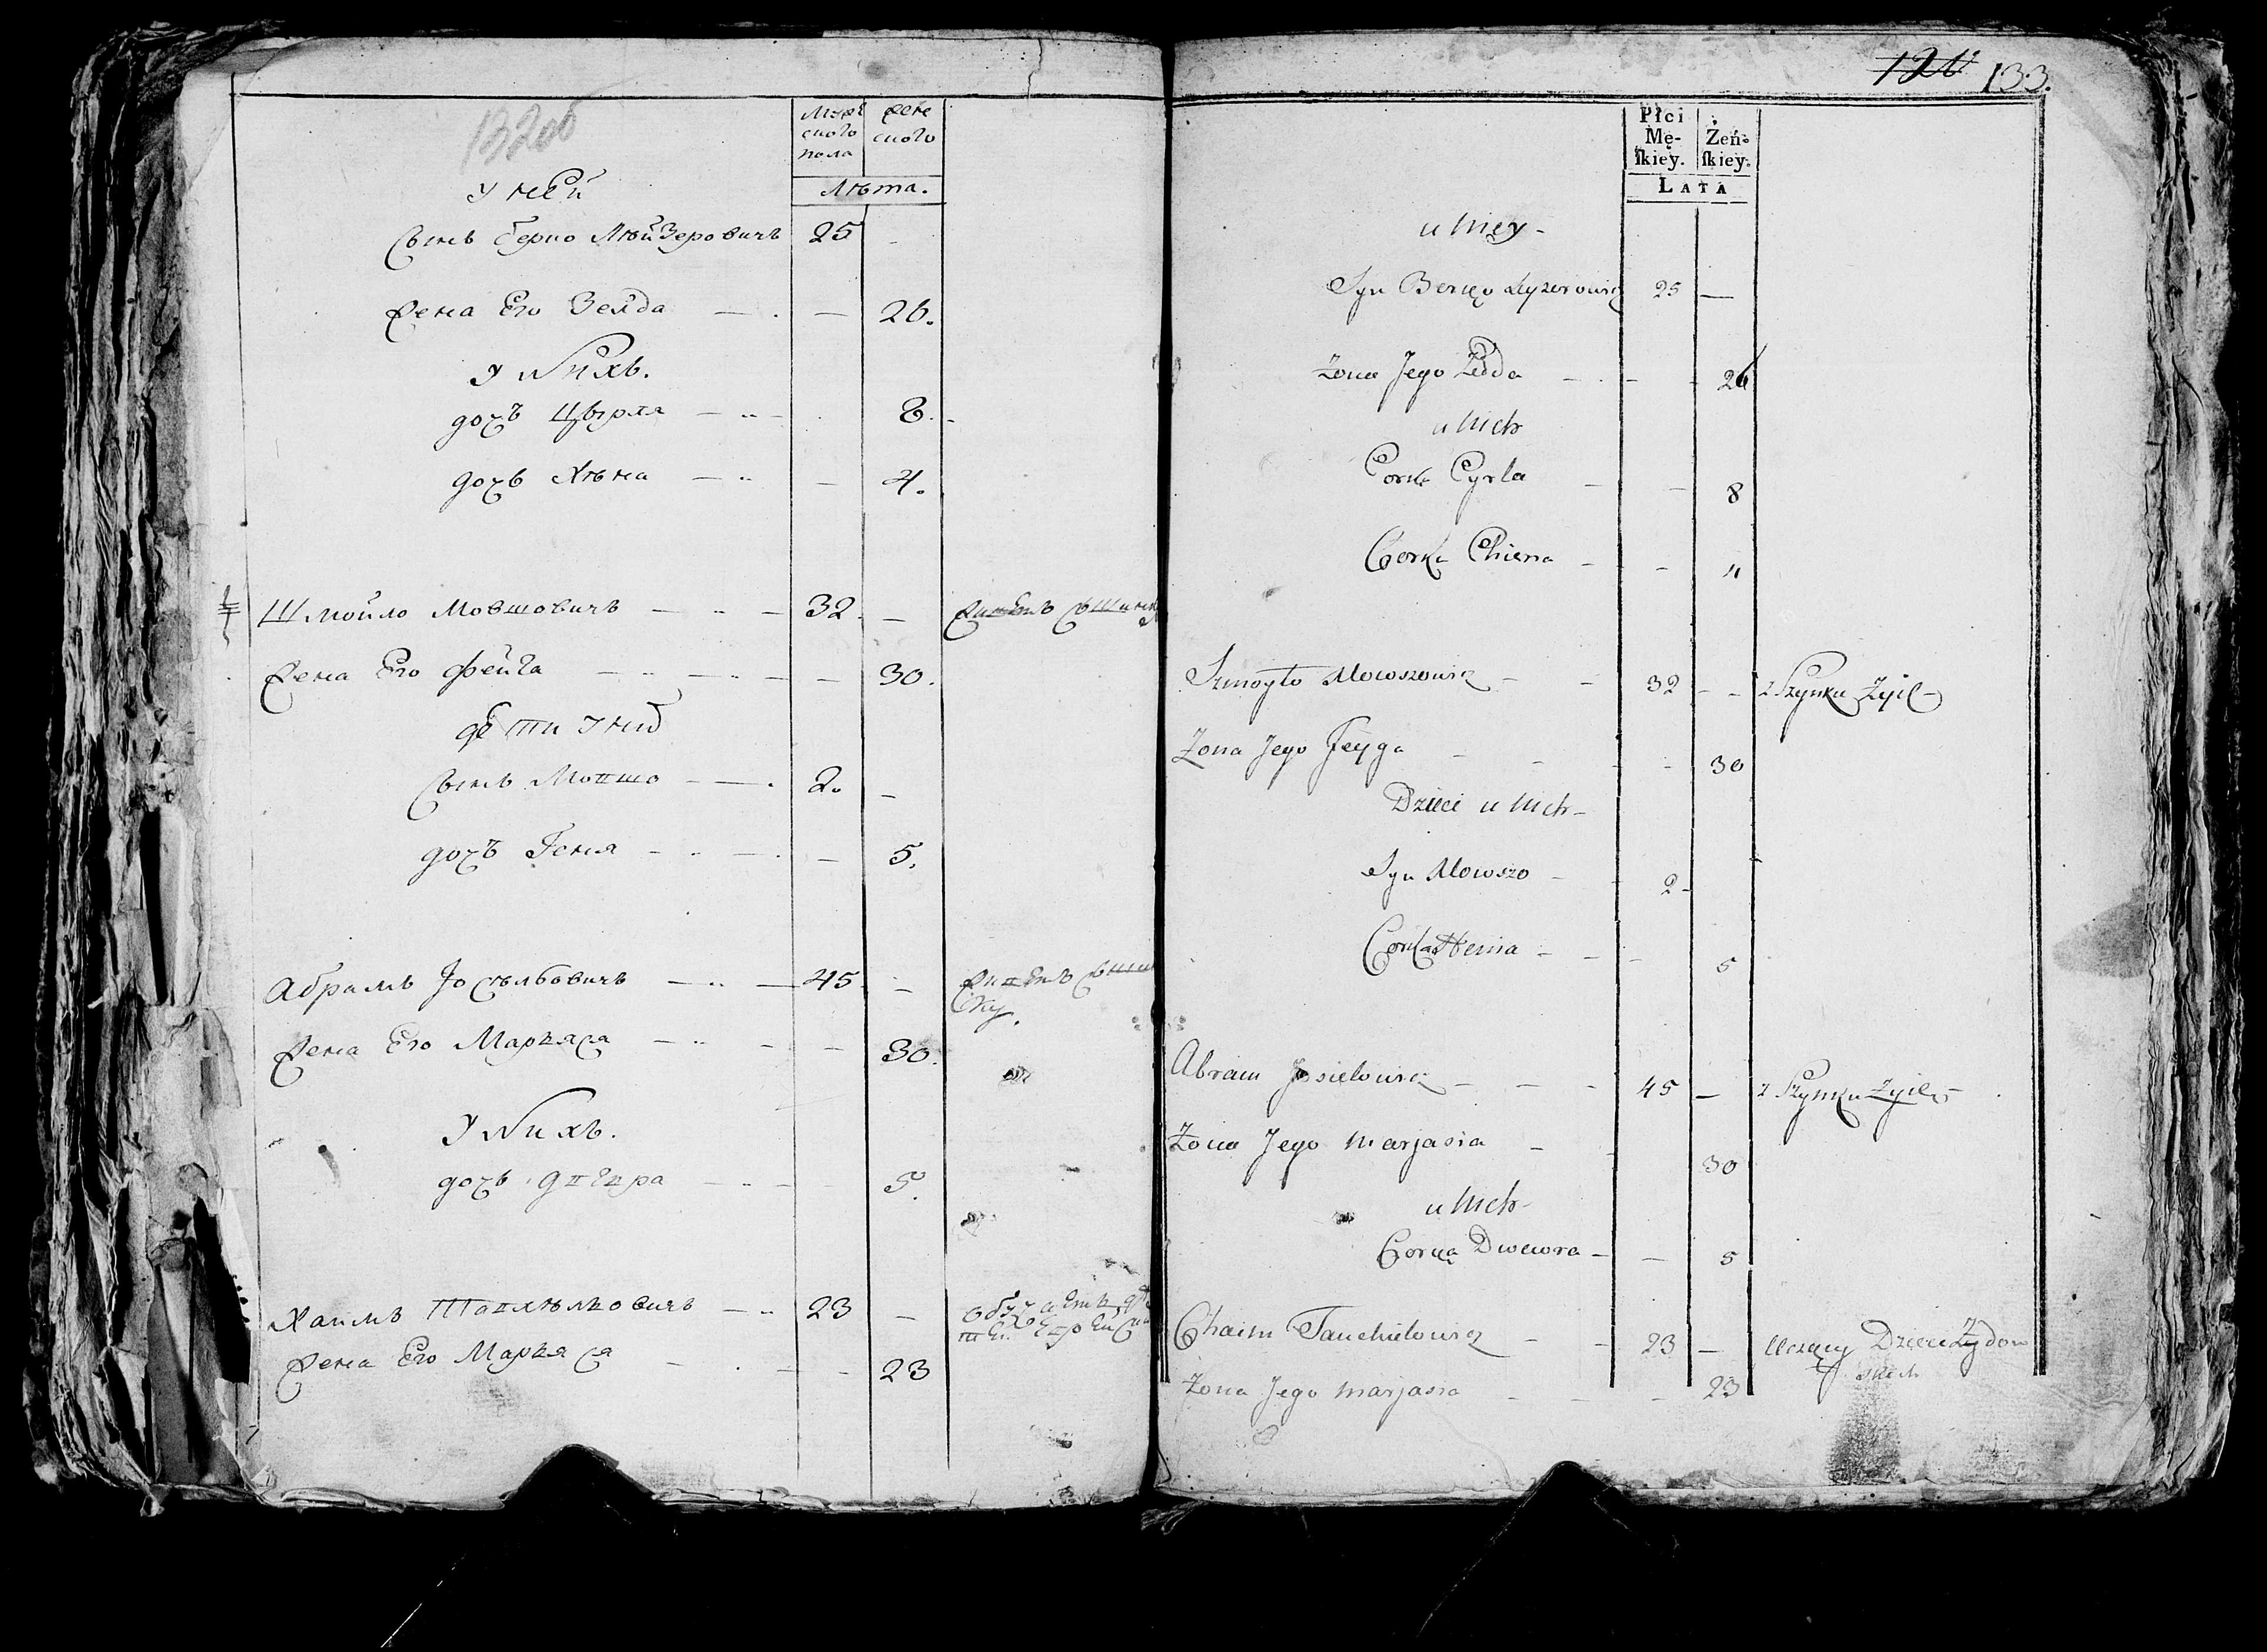 132об
Мужескаго пола
женскаго
Лѣта.
у ней
Сынъ Берко Лѣйзеровичъ 25 -
жена Его Зелда — . — 26.
у Нихъ.
дочъ Цырля — .. — 8. -
дочъ Хѣна — .. — 4.
Шмойло Мовшовичъ — .. — 32. — Живетъ съ шинку
жена Его Фейга — .. — .. — — 30.
дети у нихъ
Сынъ Мовшо — — . 2. —
дочъ Геня — .. — . — 5.
Абрамъ Іосѣлѣовичъ — .. — 45 — Живетъ съ шин
ку.
жена Его Марьяся — .. — — 30.
у Нихъ.
дочъ Двевра — .. — — 5.
Хаимъ Танхѣлѣовичъ — .. 23 —
жена Его Марьяся — . — - 23
120 133.
Płci Mę-
skiey.
Żeń-
skiey.
LATA
u Niey -
Syn Berko Leyzerowicz 25 —
Żona Jego Zelda — . - - - 26
u Nich
Corka Cyrla - - 8
Corka Chiena - - 4
Szmoyło Mowszowicz - - 32 - - z Szynku Żyie -
Żona Jego Feyga - - - - 30
Dzieci u Nich -
Syn Mowszo - - 2 -
Corka Henia - - - 5
Abram Josielowicz - - - 45 — z Szynku Żyie -
Żona Jego Marjasia - - 30
u Nich -
Corka Dwewra - — 5
Chaim Tanchielowicz - - 23 — Uczący Dzieci Żydow
skich
Żona Jego Marjasia - - - 23